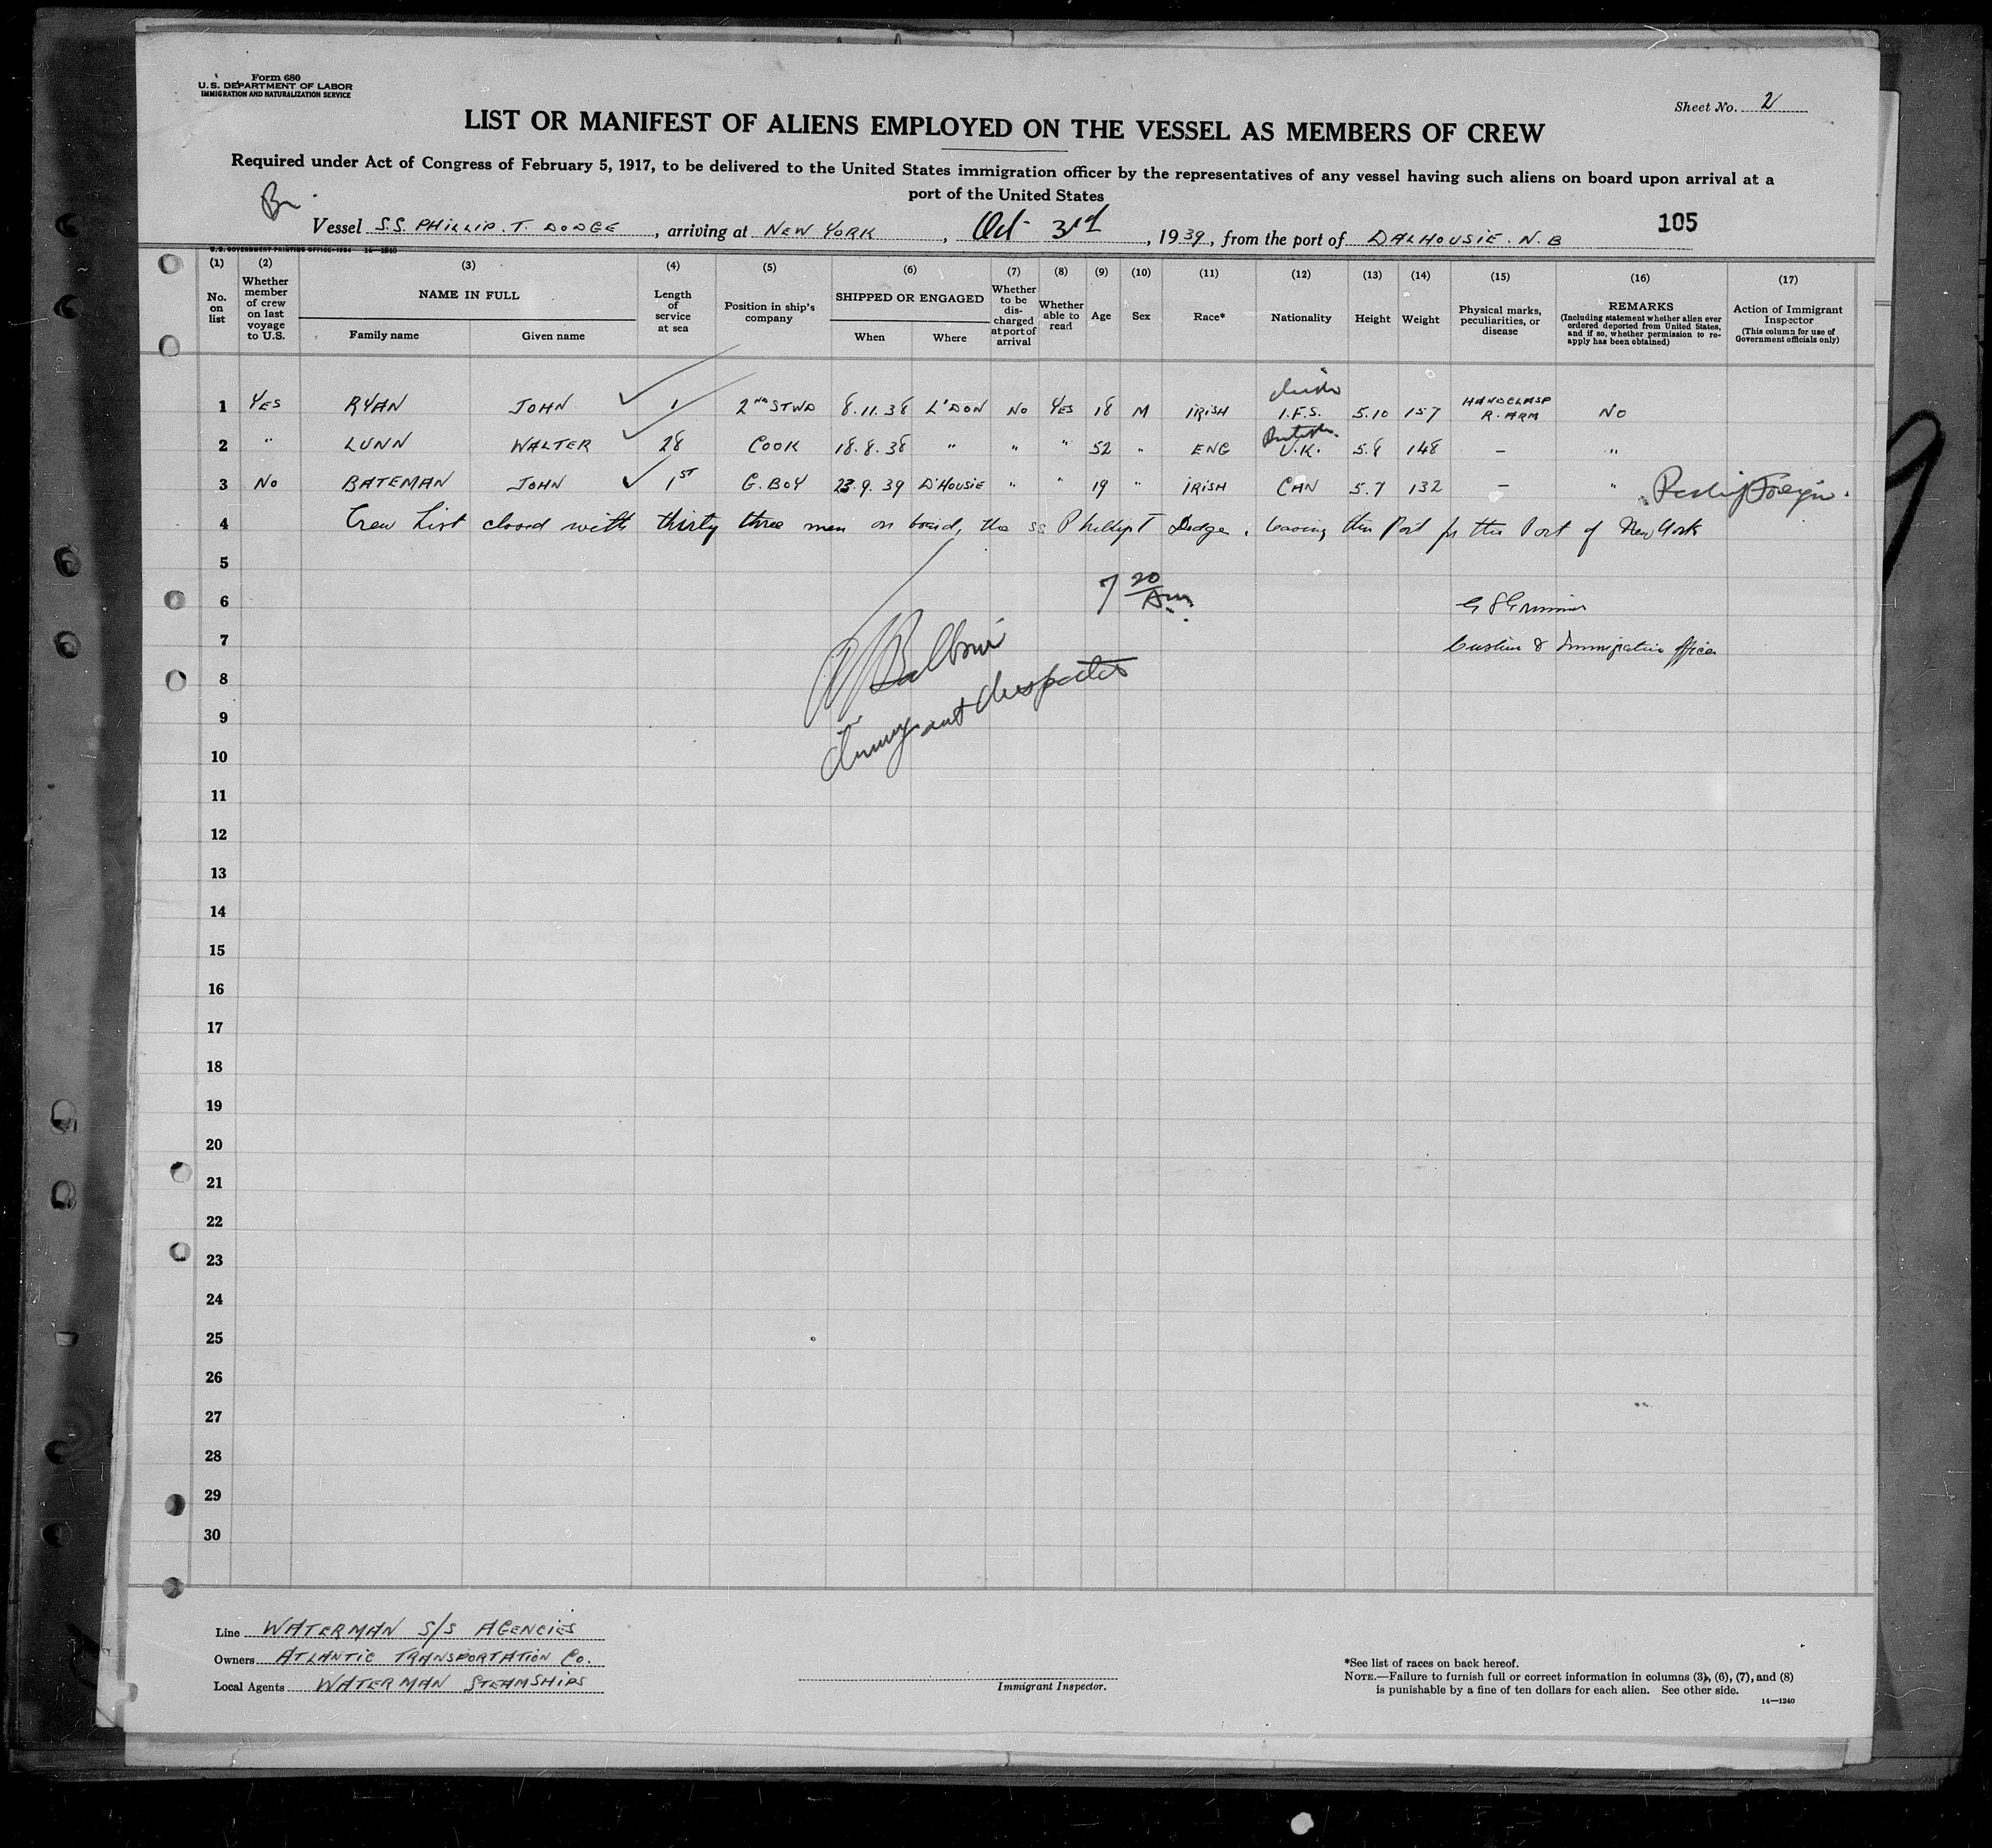 Form 680
U.S. DEPARTMENT OF LABOR
IMMIGRATION AND NATURALIZATION SERVICE
Sheet No. 2
LIST OR MANIFEST OF ALIENS EMPLOYED ON THE VESSEL AS MEMBERS OF CREW
Required under Act of Congress of February 5, 1917, to be delivered to the United States immigration officer by the representatives of any vessel having such aliens on board upon arrival at a
port of the United States
Br.
105
Vessel S.S. PHILLIP. T. DODGE, arriving at NEW YORK, Oct 3rd, 1939, from the port of DALHOUSIE. N.B
U.S. GOVERNMENT PRINTING OFFICE—1934 14—1240
(1) No. on list
(2) Whether member of crew on last voyage to U.S.
(3) NAME IN FULL Family name Given name
(4) Length of service at sea
(5) Position in ship's company
(6) SHIPPED OR ENGAGED When Where
(7) Whether to be discharged at port of arrival
(8) Whether able to read
(9) Age
(10) Sex
(11) Race*
(12) Nationality
(13) Height
(14) Weight
(15) Physical marks, peculiarities, or disease
(16) REMARKS (Including statement whether alien ever ordered deported from United States, and if so, whether permission to re-apply has been obtained)
(17) Action of Immigrant Inspector (This column for use of Government officials only)
1 YES RYAN JOHN 1 2ND STWD 8.11.38 L'DON NO YES 18 M IRISH Irish I.F.S. 5.10 157 HANDCLASP R. ARM NO
2 " LUNN WALTER 28 COOK 18.8.38 " " " 52 " ENG British U.K. 5.8 148 – "
3 NO BATEMAN JOHN 1ST G. BOY 23.9.39 D'HOUSIE " " 19 " IRISH CAN 5.7 132 – " Foreign.
4 Crew List closed with thirty three men on board, the ss Phillip T Dodge. leaving this Port for the Port of New York
5
7 20 Am.
6
7
Customs & Immigration Officer
Immigrant Inspector
8
9
10
11
12
13
14
15
16
17
18
19
20
21
22
23
24
25
26
27
28
29
30
Line WATERMAN S/S AGENCIES
Owners ATLANTIC TRANSPORTATION Co.
Local Agents WATERMAN STEAMSHIPS
Immigrant Inspector.
*See list of races on back hereof.
NOTE.—Failure to furnish full or correct information in columns (3), (6), (7), and (8)
is punishable by a fine of ten dollars for each alien. See other side.
14—1240